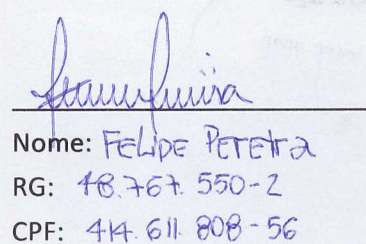 Nome: FELIPE PEREIRA
RG: 48.767.550-2
CPF: 414.611.808-56